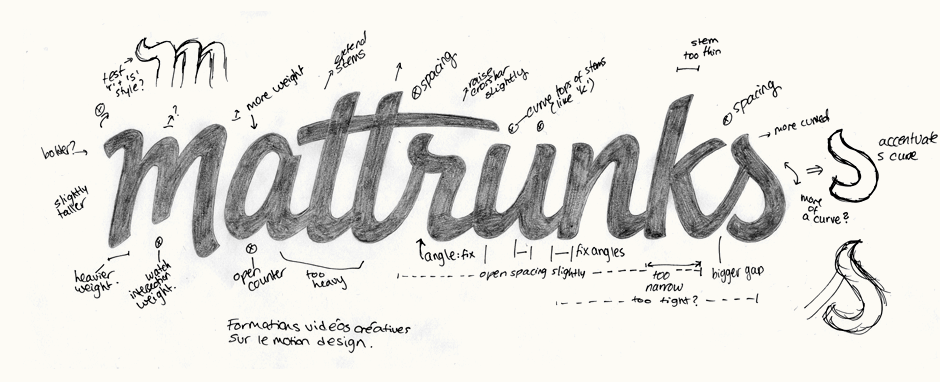 stem
too thin
extend
stems
spacing
raise
crossbar
slightly
curve tops of stems
(like 'k')
test
style?
?
more weight
spacing
more curved
bolder?
accentuate
s curve
mattrunks
slightly
taller
more
of
a curve?
heavier
weight.
watch
intersection
weight.
open
counter
too
heavy
angle: fix
fix angles
open spacing slightly
too
narrow
bigger gap
too tight?
Formations vidéos créatives
sur le motion design.